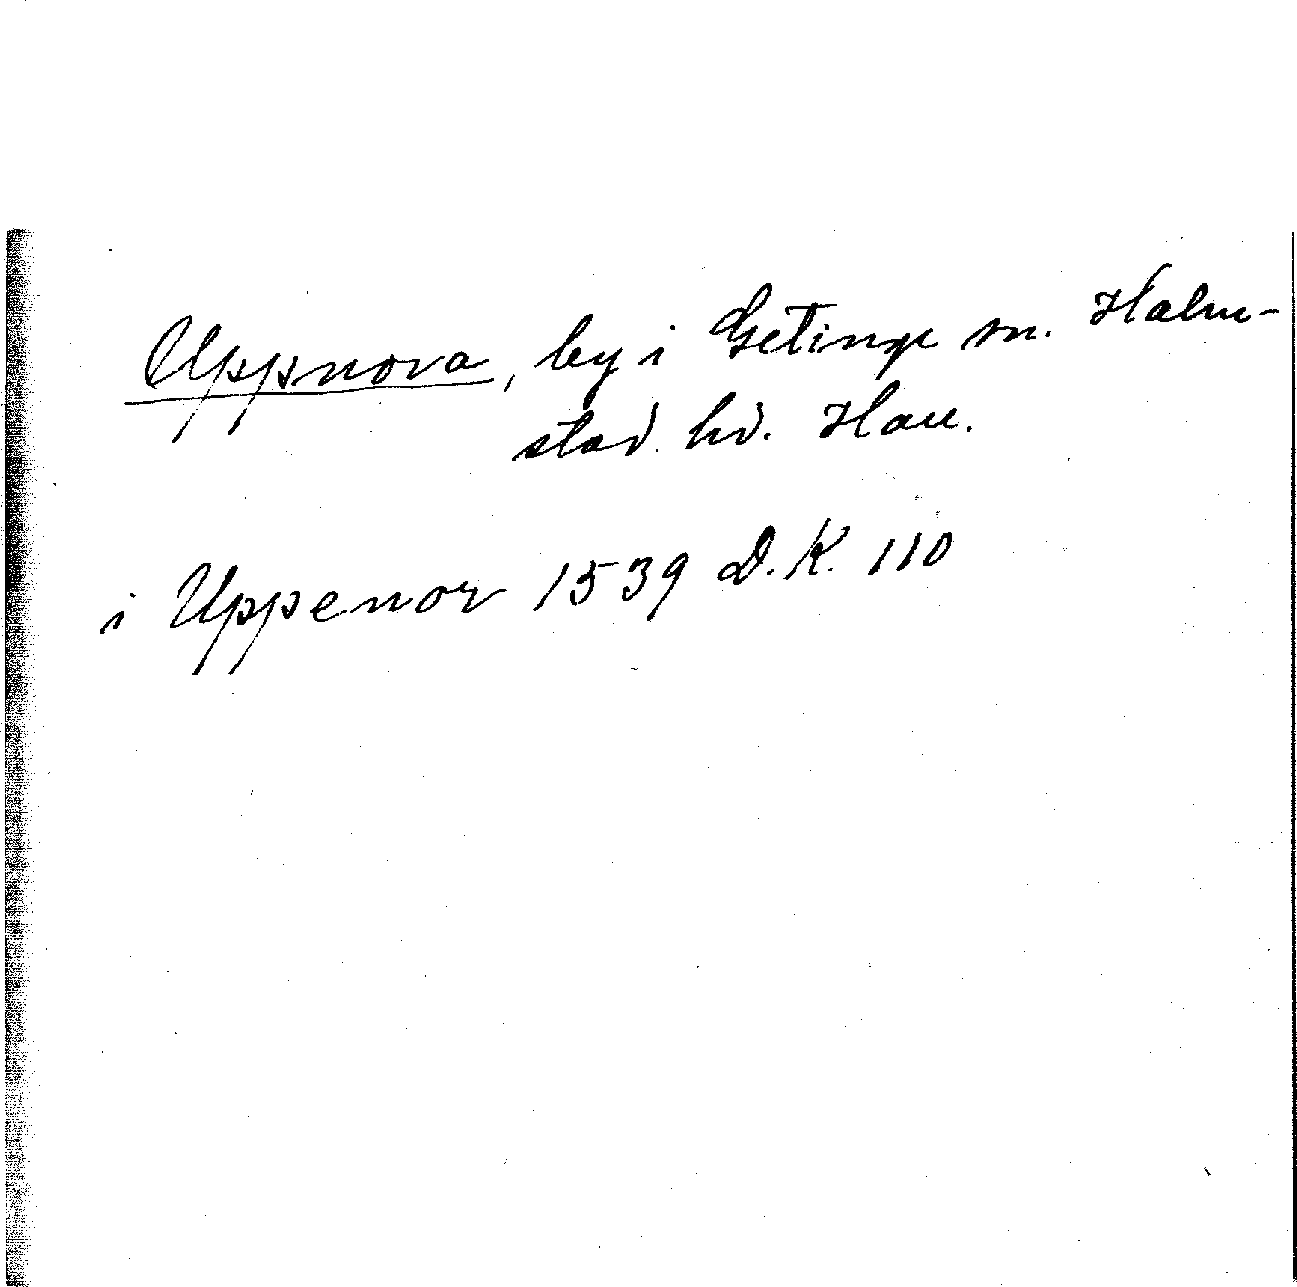 Uppnora, by i Getinge sn. Halm-
stad hd. Hall.
i Uppenor 1539 D.K. 110